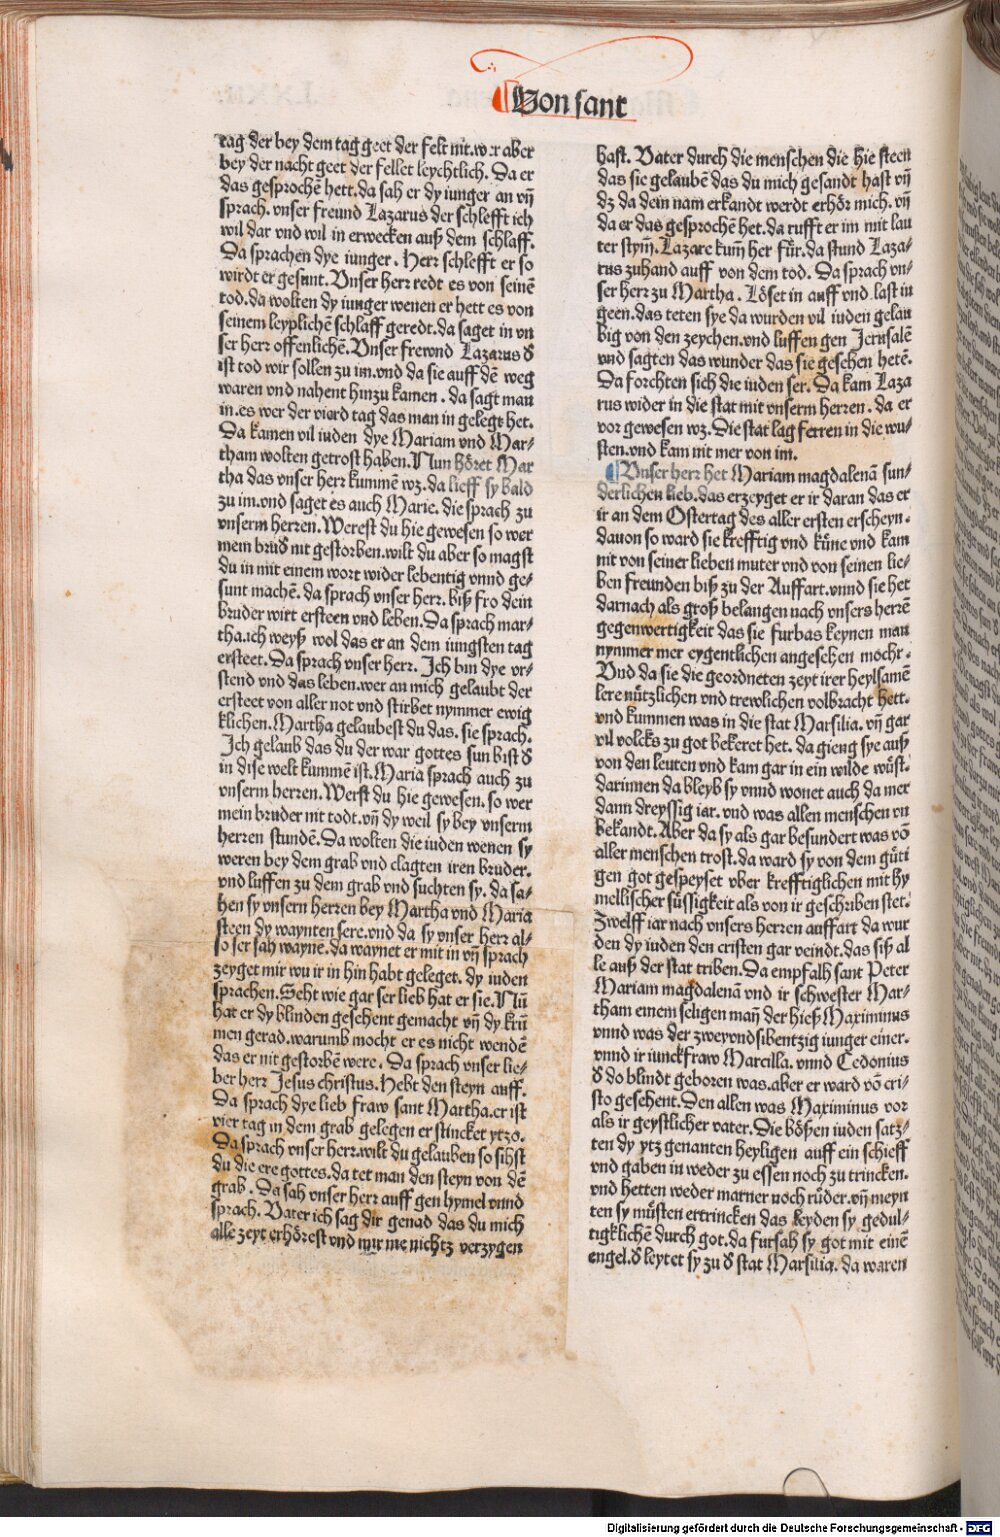 Von sant
tag der bey dem tag geet der felt nit.wer aber
bey der nacht geet der fellet leychtlich. Da er
das gesprochē hett.da sah er dy iunger an vn̄
sprach.vnser freund Lazarus der schlefft ich
wil dar vnd wil in erwecken auß dem schlaff.
Da sprachen dye iunger. Herr schlefft er so
wirdt er gesunt. Vnser herr redt es von seinē
tod.da wolten dy iunger wenen er hett es von
seinem leyplichē schlaff geredt.da saget in vn
ser herr offenlichē. Vnser frewnd Lazarus đ
ist tod wir sollen zu im.vnd da sie auff dē weg
waren vnd nahent hinzu kamen. da sagt man
in.es wer der vierd tag das man in gelegt het.
Da kamen vil iuden dye Mariam vnd Mar-
tham wolten getrost haben. Nun höret Mar
tha das vnser herr kummē wz.da lieff sy bald
zu im.vnd saget es auch Marie. die sprach zu
vnserm herren. Werest du hie gewesen so wer
mein brud nit gestorben.wilt du aber so magst
du in mit einem wort wider lebentig vnnd ge-
sunt machē. da sprach vnser herr. biß fro dein
bruder wirt ersteen vnd leben. Da sprach mar-
tha.ich weyß wol das er an dem iungsten tag
ersteet. Da sprach vnser herr. Ich bin dye vr-
stend vnd das leben.wer an mich gelaubt der
ersteet von aller not vnd stirbet nymmer ewig
klichen. Martha gelaubest du das. sie sprach.
Ich gelaub das du der war gottes sun bist đ
in dise welt kummē ist. Maria sprach auch zu
vnserm herren. Werst du hie gewesen. so wer
mein bruder nit todt.vn̄ dy weil sy bey vnserm
herren stundē. Da wolten die iuden wenen sy
weren bey dem grab vnd clagten iren bruder.
vnd luffen zu dem grab vnd suchten sy. da sa-
hen sy vnsern herren bey Martha vnd Maria
steen dy waynten sere.vnd da sy vnser herr al-
so ser sah wayne.da waynet er mit in vn̄ sprach
zeyget mir wu ir in hin habt geleget. dy iuden
sprachen. Seht wie gar ser lieb hat er sie. Nū
hat er dy blinden gesehent gemacht vn̄ dy krū
men gerad.warumb mocht er es nicht wendē
das er nit gestorbē were. Da sprach vnser lie-
ber herr Jesus christus. Hebt den steyn auff.
Da sprach dye lieb fraw sant Martha.er ist
vier tag in dem grab gelegen er stincket ytzo.
Da sprach vnser herr.wilt du gelauben so sihst
du die ere gottes.da tet man den steyn von dē
grab. Da sah vnser herr auff gen hymel vnnd
sprach. Vater ich sag dir genad das du mich
alle zeyt erhörest vnd mir nie nichtz verzygen
hast. Vater durch die menschen die hie steen
das sie gelaubē das du mich gesandt hast vn̄
dz da dein nam erkandt werdt erhör mich. vn̄
da er das gesprochē het.da rufft er im mit lau
ter stym̄. Lazare kum̄ her für.da stund Laza-
rus zuhand auff von dem tod. Da sprach vn-
ser herr zu Martha. Löset in auff vnd last in
geen.das teten sye da wurden vil iuden gelau
big von den zeychen.vnd luffen gen Jerusalē
vnd sagten das wunder das sie gesehen hetē.
Da forchten sich die iuden ser. Da kam Laza
rus wider in die stat mit vnserm herren. da er
vor gewesen wz. Die stat lag ferren in die wu-
sten.vnd kam nit mer von im.
Vnser herr het Mariam magdalenā sun-
derlichen lieb.das erzeyget er ir daran das er
ir an dem Ostertag des aller ersten erscheyn.
dauon so ward sie krefftig vnd küne vnd kam
nit von seiner lieben muter vnd von seinen lie-
ben freunden biß zu der Auffart.vnnd sie het
darnach als groß belangen nach vnsers herrē
gegenwertigkeit das sie furbas keynen man
nymmer mer eygentlichen angesehen mocht.
Vnd da sie die geordneten zeyt irer heylsamē
lere nützlichen vnd trewlichen volbracht hett.
vnd kummen was in die stat Marsilia. vn̄ gar
vil volcks zu got bekeret het. da gieng sye auß
von den leuten vnd kam gar in ein wilde wüst.
darinnen da bleyb sy vnnd wonet auch da mer
dann dreyssig iar. vnd was allen menschen vn
bekandt. Aber da sy als gar besundert was vō
aller menschen trost.da ward sy von dem güti
gen got gespeyset vber krefftiglichen mit hy
mellischer süssigkeit als von ir geschriben stet.
Zwelff iar nach vnsers herren auffart da wur
den dy iuden den cristen gar veindt.das siß al
le auß der stat triben. Da empfalh sant Peter
Mariam magdalenā vnd ir schwester Mar-
tham einem seligen man̄ der hieß Maximinus
vnnd was der zweyvndsibentzig iunger einer.
vnnd ir iunckfraw Marcilla. vnnd Cedonius
đ do blindt geboren was.aber er ward vō cri-
sto gesehent. Den allen was Maximinus vor
als ir geystlicher vater. Die bößen iuden satz-
ten dy ytz genanten heyligen auff ein schieff
vnd gaben in weder zu essen noch zu trincken.
vnd hetten weder marner noch rüder.vn̄ meyn
ten sy müsten ertrincken das leyden sy gedul-
tigklichē durch got.da fursah sy got mit einē
engel.đ leytet sy zu đ stat Marsilia. da waren
Digitalisierung gefördert durch die Deutsche Forschungsgemeinschaft - DFG